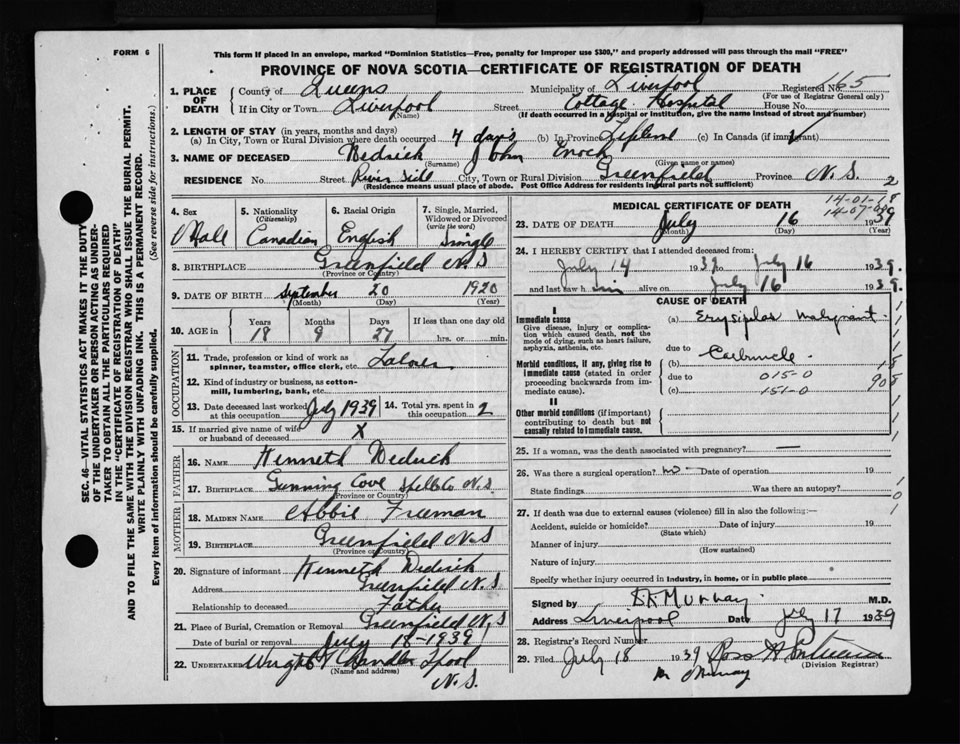 FORM 6
This form if placed in an envelope, marked "Dominion Statistics—Free, penalty for improper use $300," and properly addressed will pass through the mail "FREE"
PROVINCE OF NOVA SCOTIA—CERTIFICATE OF REGISTRATION OF DEATH
SEC. 46—VITAL STATISTICS ACT MAKES IT THE DUTY
OF THE UNDERTAKER OR PERSON ACTING AS UNDER-
TAKER TO OBTAIN ALL THE PARTICULARS REQUIRED
IN THE "CERTIFICATE OF REGISTRATION OF DEATH"
AND TO FILE THE SAME WITH THE DIVISION REGISTRAR WHO SHALL ISSUE THE BURIAL PERMIT.
WRITE PLAINLY WITH UNFADING INK. THIS IS A PERMANENT RECORD.
Every item of information should be carefully supplied. (See reverse side for instructions.)
1. PLACE OF DEATH
County of Queens Municipality of Liverpool Registered No. 165
(For use of Registrar General only)
If in City or Town Liverpool Street Cottage Hospital House No.
(Name) (If death occurred in a hospital or institution, give the name instead of street and number)
2. LENGTH OF STAY (in years, months and days)
(a) In City, Town or Rural Division where death occurred 4 days (b) In Province Lifetime (c) In Canada (if immigrant)
3. NAME OF DECEASED Wedrick John Enoch
(Surname) (Given name or names)
RESIDENCE No. Street River Side City, Town or Rural Division Greenfield Province N.S. 2
(Residence means usual place of abode. Post Office Address for residents in rural parts not sufficient)
4. Sex Male
5. Nationality (Citizenship) Canadian
6. Racial Origin English
7. Single, Married, Widowed or Divorced (write the word) Single
8. BIRTHPLACE Greenfield N S
(Province or Country)
9. DATE OF BIRTH September 20 1920
(Month) (Day) (Year)
10. AGE in Years 18 Months 9 Days 27 If less than one day old hrs. or min.
OCCUPATION
11. Trade, profession or kind of work as spinner, teamster, office clerk, etc. Labor
12. Kind of industry or business, as cotton-mill, lumbering, bank, etc.
13. Date deceased last worked at this occupation July 1939 14. Total yrs. spent in this occupation 2
15. If married give name of wife or husband of deceased X
FATHER
16. NAME Kenneth Wedrick
17. BIRTHPLACE Gunning Cove Shelb Co N.S.
(Province or Country)
MOTHER
18. MAIDEN NAME Abbie Freeman
19. BIRTHPLACE Greenfield N.S
(Province or Country)
20. Signature of informant Kenneth Wedrick
Address Greenfield N.S.
Relationship to deceased Father
21. Place of Burial, Cremation or Removal Greenfield N.S
Date of burial or removal July 18-1939
22. UNDERTAKER Wright Chandler Lpool
(Name and address)
N.S.
MEDICAL CERTIFICATE OF DEATH
23. DATE OF DEATH July 16 1939
(Month) (Day) (Year)
24. I HEREBY CERTIFY that I attended deceased from:
July 14 1939 to July 16 1939.
and last saw h im alive on July 16 1939.
CAUSE OF DEATH
I
Immediate cause (a) Erysipelas malignant
Give disease, injury or complication which caused death, not the mode of dying, such as heart failure, asphyxia, asthenia, etc.
due to Carbuncle
Morbid conditions, if any, giving rise to immediate cause (stated in order proceeding backwards from immediate cause).
(b)
due to 015-0
(c) 151-0
II
Other morbid conditions (if important) contributing to death but not causally related to immediate cause.
25. If a woman, was the death associated with pregnancy? —
26. Was there a surgical operation? no Date of operation 19
State findings Was there an autopsy?
27. If death was due to external causes (violence) fill in also the following:—
Accident, suicide or homicide? Date of injury 19
(State which)
Manner of injury
(How sustained)
Nature of injury
Specify whether injury occurred in industry, in home, or in public place
Signed by Murray M.D.
Address Liverpool Date July 17 1939
28. Registrar's Record Number
29. Filed July 18 1939 Ross
(Division Registrar)